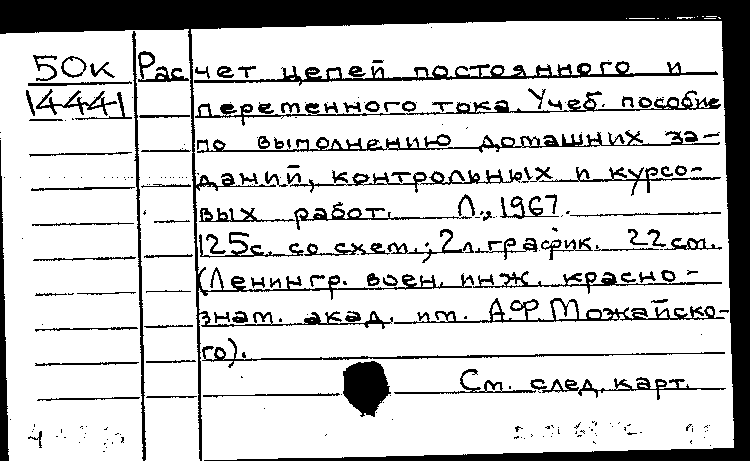 50к Расчет цепей постоянного и
14441 переменного тока. Учеб. пособие
по выполнению домашних за-
даний, контрольных и курсо-
вых работ. Л., 1967.
125с. со схем.; 2л. график. 22см.
(Ленингр. воен. инж. красно-
знам. акад. им. А.Ф. Можайско-
го).
См. след. карт.